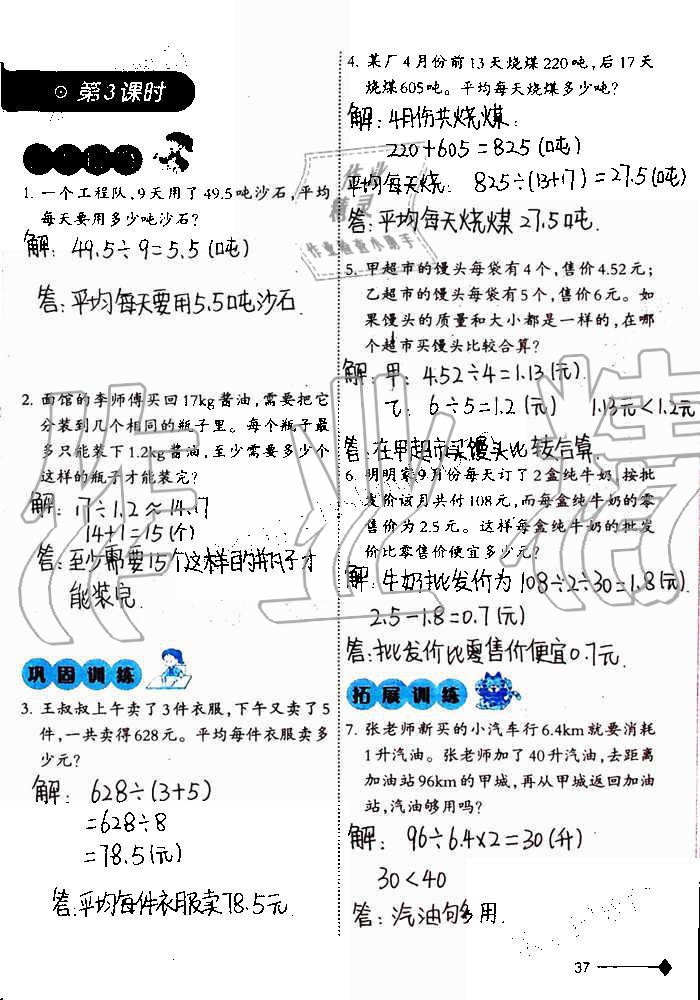 第3课时
1. 一个工程队,9天用了49.5吨沙石,平均
每天要用多少吨沙石?
解: 49.5÷9=5.5(吨)
答:平均每天要用5.5吨沙石.
2. 面馆的李师傅买回17kg酱油,需要把它
分装到几个相同的瓶子里。每个瓶子最
多只能装下1.2kg酱油,至少需要多少个
这样的瓶子才能装完?
解: 17÷1.2≈14.17
14+1=15(个)
答:至少需要15个这样的瓶子才
能装完.
巩固训练
3. 王叔叔上午卖了3件衣服,下午又卖了5
件,一共卖得628元。平均每件衣服卖多
少元?
解: 628÷(3+5)
=628÷8
=78.5(元)
答:平均每件衣服卖78.5元.
4. 某厂4月份前13天烧煤220吨,后17天
烧煤605吨。平均每天烧煤多少吨?
解:4月份共烧煤:
220+605=825(吨)
平均每天烧: 825÷(13+17)=
答:平均每天烧煤27.5吨.
5. 甲超市的馒头每袋有4个,售价4.52元;
乙超市的馒头每袋有5个,售价6元。如
果馒头的质量和大小都是一样的,在哪
个超市买馒头比较合算?
解:甲: 4.52÷4=1.13(元)
乙: 6÷5=1.2(元) 1.13元<1.2元
答:在甲超市买馒头比较合算.
6. 明明家9月份每天订了2盒纯牛奶,按批
发价该月共付108元,而每盒纯牛奶的零
售价为2.5元。这样每盒纯牛奶的批发
价比零售价便宜多少元?
解:牛奶批发价为108÷2÷30=1.8(元)
2.5-1.8=0.7(元)
答:批发价比零售价便宜0.7元.
拓展训练
7. 张老师新买的小汽车行6.4km就要消耗
1升汽油。张老师加了40升汽油,去距离
加油站96km的甲城,再从甲城返回加油
站,汽油够用吗?
解: 96÷6.4×2=30(升)
30<40
答:汽油够用.
37